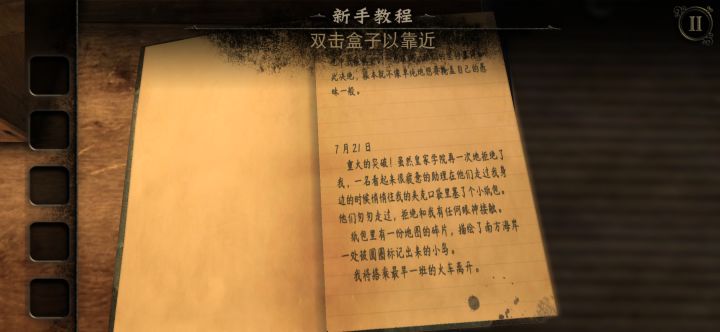 新手教程
双击盒子以靠近
此决绝，根本就不像单纯地想要掩盖自己的愚
昧一般。
7月21日
重大的突破！虽然皇家学院再一次地拒绝了
我，一名看起来很疲惫的助理在他们走过我身
边的时候悄悄往我的夹克口袋里塞了个小纸包。
他们匆匆走过，拒绝和我有任何眼神接触。
纸包里有一份地图的碎片，描绘了南方海岸
一处被圆圈标记出来的小岛。
我将搭乘最早一班的火车离开。